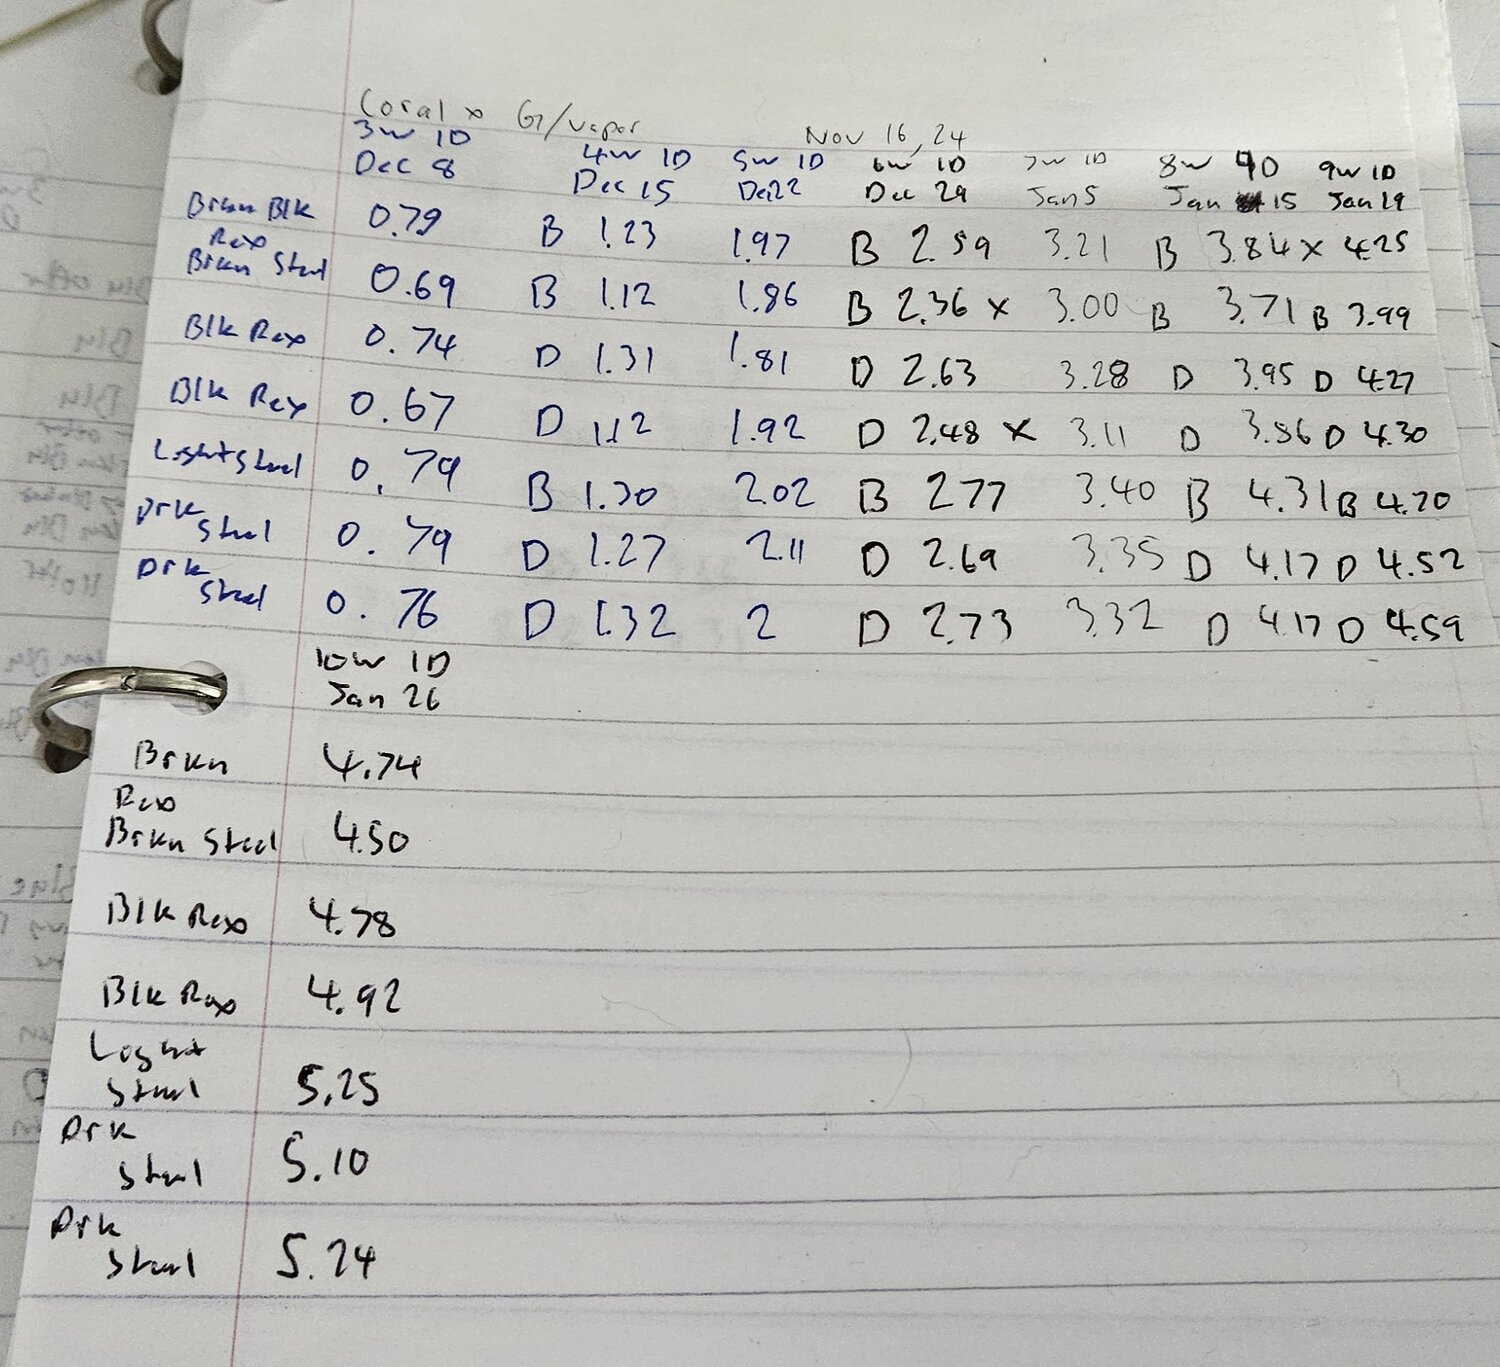 Coral x G/vapor Nov 16, 24
3w 1D 4w 1D 5w 1D 6w 1D 7w 1D 8w 4D 9w 1D
Dec 8 Dec 15 Dec 22 Dec 29 Jan 5 Jan 15 Jan 19
Brkn Blk 0.79 B 1.23 1.97 B 2.59 3.21 B 3.84 x 4.25
Rex
Brkn Steel 0.69 B 1.12 1.86 B 2.36 x 3.00 B 3.71 B 3.99
Blk Rex 0.74 D 1.31 1.81 D 2.63 3.28 D 3.95 D 4.27
Blk Rex 0.67 D 1.12 1.92 D 2.48 x 3.11 D 3.86 D 4.30
Light Steel 0.79 B 1.30 2.02 B 2.77 3.40 B 4.31 B 4.70
Drk
Steel 0.79 D 1.27 2.11 D 2.69 3.35 D 4.17 D 4.52
Drk
Steel 0.76 D 1.32 2 D 2.73 3.32 D 4.17 D 4.59
10w 1D
Jan 26
Brkn 4.74
Rex
Brkn Steel 4.50
Blk Rex 4.78
Blk Rex 4.92
Light
Steel 5.25
Drk
Steel 5.10
Drk
Steel 5.24